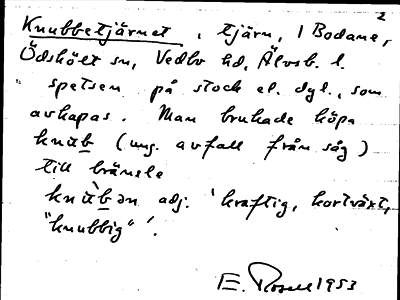 2
Knubbetjärnet, tjärn, i Bodane,
Ödskölt sn, Vedbo hd, Älvsb. l.
spetsen på stock el. dyl., som
avkapas. Man brukade köpa
knub (ung. avfall från såg)
till bränsle
knùbən adj. 'kraftig, kortväxt,
"knubbig"'.
E. Rosell 1953